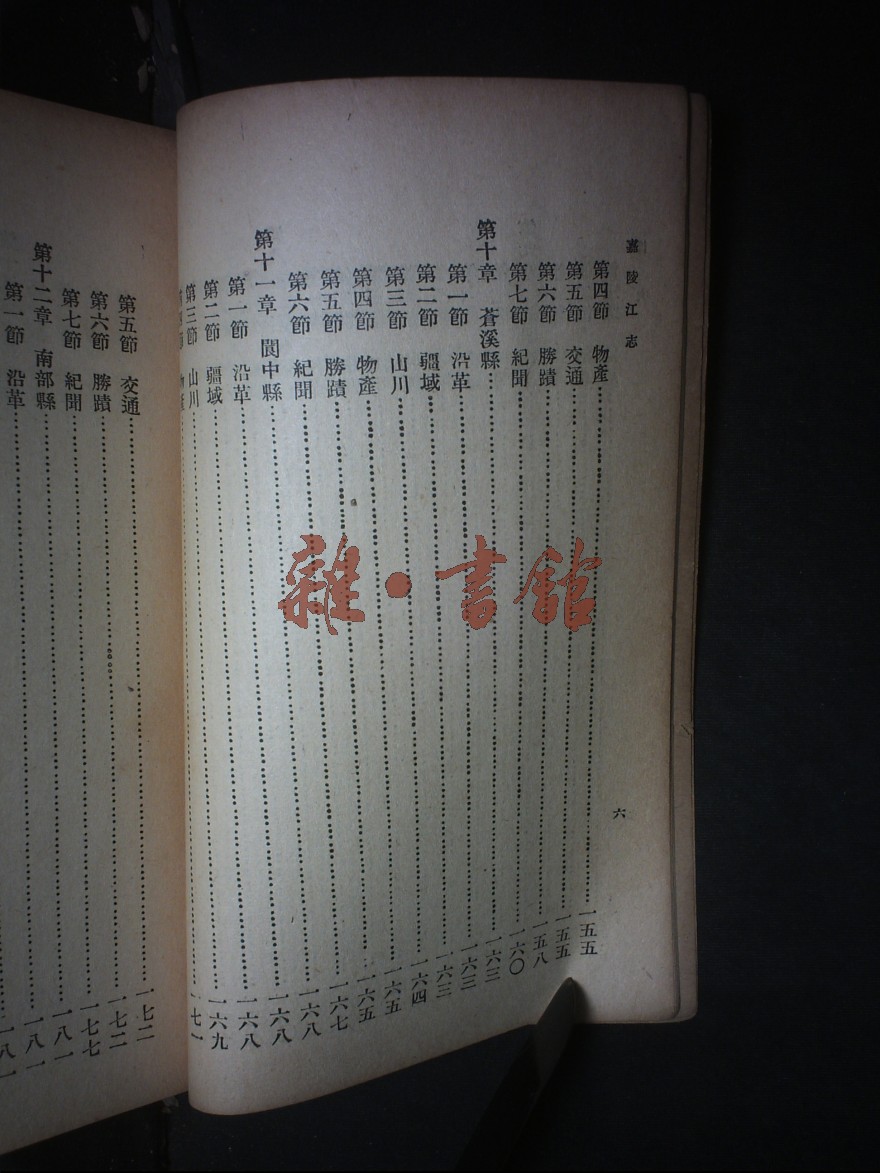 嘉陵江志
六
第四節 物產……一五五
第五節 交通……一五五
第六節 勝蹟……一五八
第七節 紀聞……一六〇
第十章 蒼溪縣……一六三
第一節 沿革……一六三
第二節 疆域……一六三
第三節 山川……一六四
第四節 物產……一六五
第五節 勝蹟……一六五
第六節 紀聞……一六七
第十一章 閬中縣……一六八
第一節 沿革……一六八
第二節 疆域……一六八
第三節 山川……一六九
第四節 物產……一七一
第五節 交通……一七二
第六節 勝蹟……一七二
第七節 紀聞……一七七
第十二章 南部縣……一八一
第一節 沿革……一八一
雜·書館